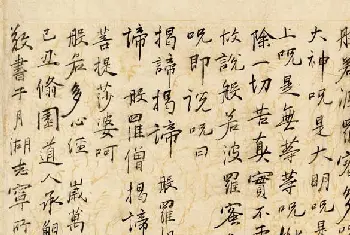 般若波羅蜜多
大神咒是大明咒是
上咒是無等等咒
除一切苦真實不
故說般若波羅蜜
咒即說咒曰
揭諦揭諦 般羅揭
諦 般羅僧揭諦
菩提莎婆呵
般若多心經 歲
己丑脩園道人承
敬書于月湖志寧